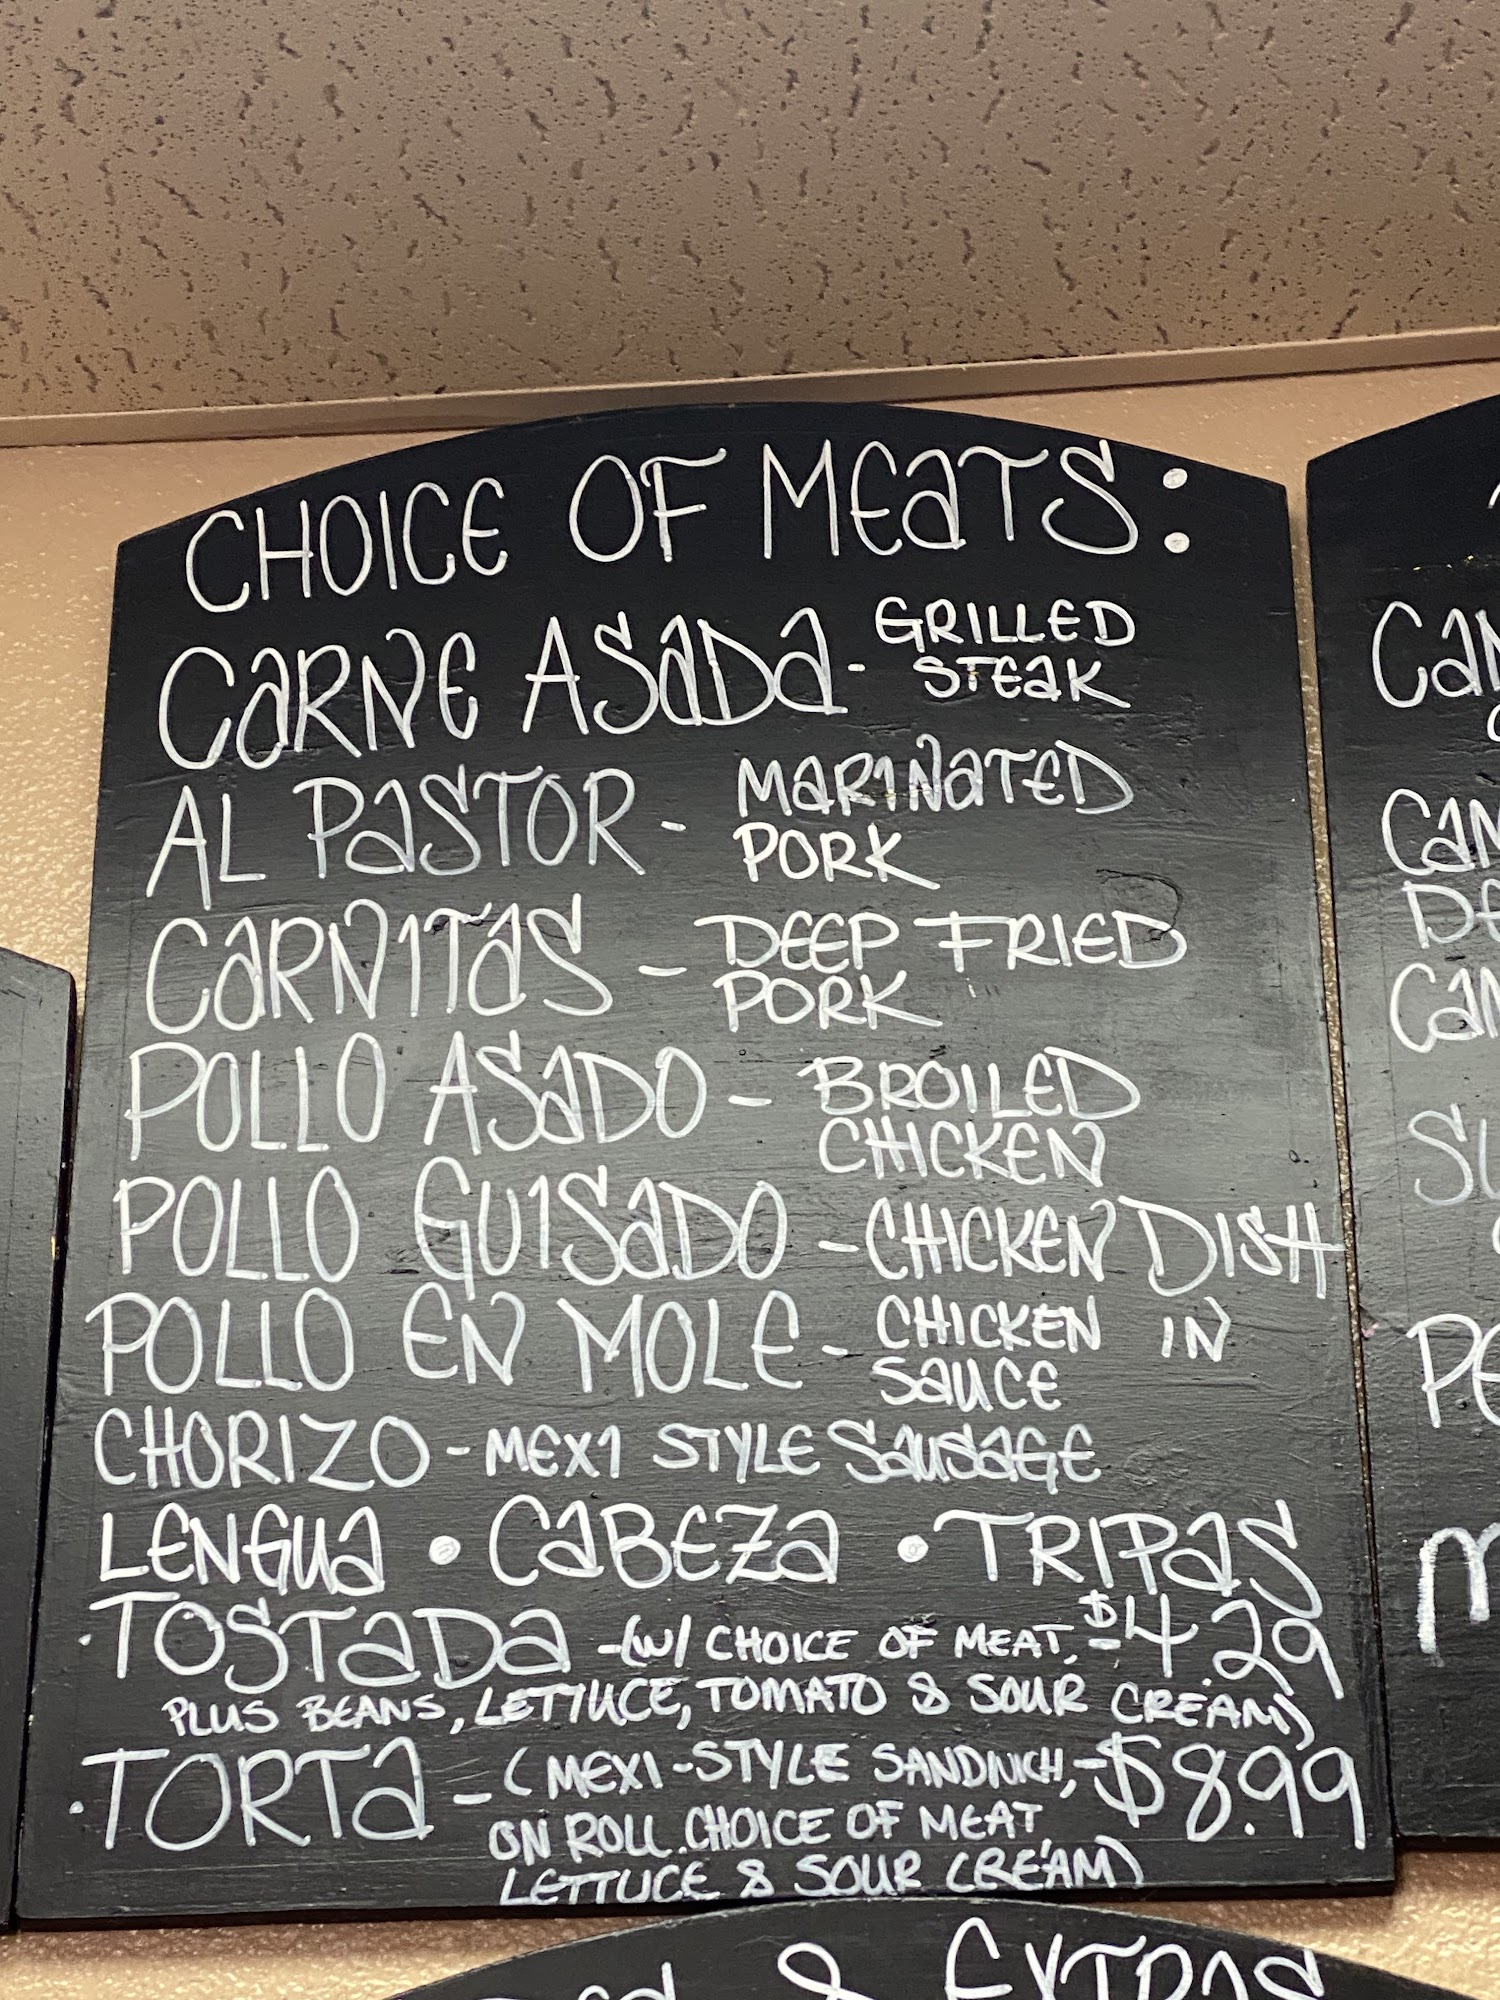 CHOICE OF MEATS:
CARNE ASADA - GRILLED
STEAK
AL PASTOR - MARINATED
PORK
CARNITAS - DEEP FRIED
PORK
POLLO ASADO - BROILED
CHICKEN
POLLO GUISADO - CHICKEN DISH
POLLO EN MOLE - CHICKEN IN
SAUCE
CHORIZO - MEXI STYLE SAUSAGE
LENGUA • CABEZA • TRIPAS
·TOSTADA - (W/ CHOICE OF MEAT, - $4.29
PLUS BEANS, LETTUCE, TOMATO & SOUR CREAM)
·TORTA - (MEXI-STYLE SANDWICH, - $8.99
ON ROLL. CHOICE OF MEAT,
LETTUCE & SOUR CREAM)
& EXTRAS